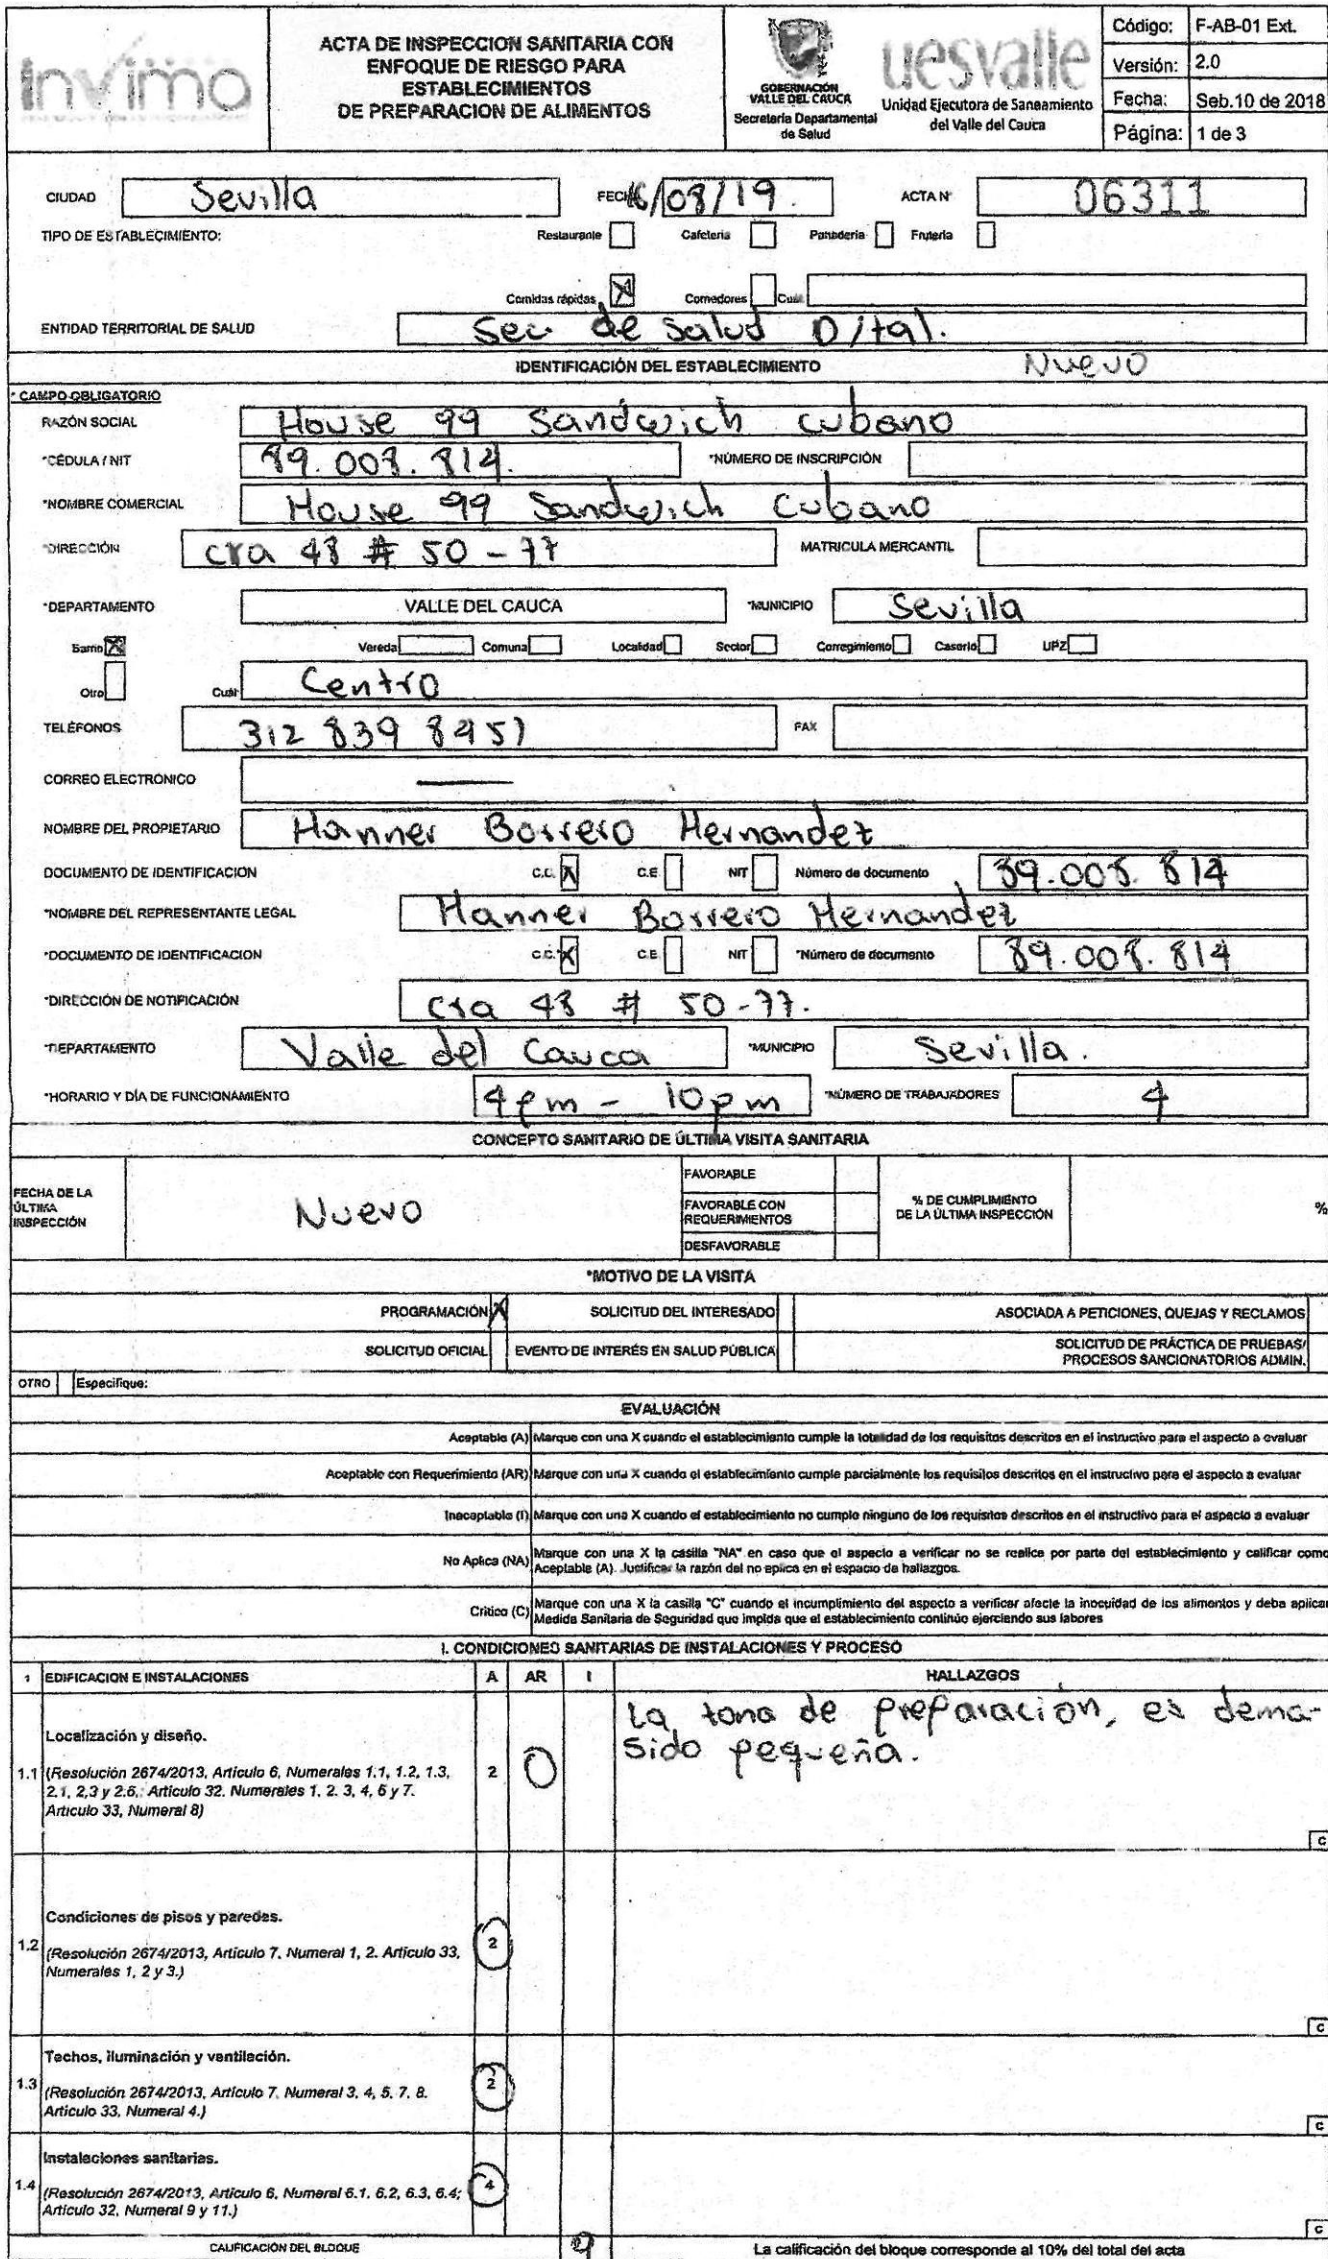 invimo
ACTA DE INSPECCION SANITARIA CON
ENFOQUE DE RIESGO PARA
ESTABLECIMIENTOS
DE PREPARACION DE ALIMENTOS
GOBERNACIÓN
VALLE DEL CAUCA
Secretaría Departamental
de Salud
uesvalle
Unidad Ejecutora de Saneamiento
del Valle del Cauca
Código: F-AB-01 Ext.
Versión: 2.0
Fecha: Seb.10 de 2018
Página: 1 de 3
CIUDAD Sevilla FECHA 16/08/19. ACTA Nº 06311
TIPO DE ESTABLECIMIENTO: Restaurante Cafeteria Panaderia Fruteria
Comidas rápidas X Comedores Cuál
ENTIDAD TERRITORIAL DE SALUD Sec. de Salud D/tal.
IDENTIFICACIÓN DEL ESTABLECIMIENTO Nuevo
* CAMPO OBLIGATORIO
RAZÓN SOCIAL House 99 Sandwich cubano
*CÉDULA / NIT 89.008.814. *NÚMERO DE INSCRIPCIÓN
*NOMBRE COMERCIAL House 99 Sandwich Cubano
*DIRECCIÓN cra 48 # 50 - 77 MATRICULA MERCANTIL
*DEPARTAMENTO VALLE DEL CAUCA *MUNICIPIO Sevilla
Barrio X Vereda Comuna Localidad Sector Corregimiento Caserio UPZ
Otro Cuál Centro
TELÉFONOS 312 839 8451 FAX
CORREO ELECTRONICO —
NOMBRE DEL PROPIETARIO Hanner Borrero Hernandez
DOCUMENTO DE IDENTIFICACION C.C. X C.E. NIT Número de documento 89.008.814
*NOMBRE DEL REPRESENTANTE LEGAL Hanner Borrero Hernandez
*DOCUMENTO DE IDENTIFICACION C.C. X C.E. NIT *Número de documento 89.008.814
*DIRECCIÓN DE NOTIFICACIÓN cra 48 # 50-77.
*DEPARTAMENTO Valle del Cauca *MUNICIPIO Sevilla.
*HORARIO Y DÍA DE FUNCIONAMIENTO 4pm - 10pm *NÚMERO DE TRABAJADORES 4
CONCEPTO SANITARIO DE ÚLTIMA VISITA SANITARIA
FECHA DE LA
ÚLTIMA
INSPECCIÓN
Nuevo
FAVORABLE
FAVORABLE CON
REQUERIMIENTOS
DESFAVORABLE
% DE CUMPLIMIENTO
DE LA ÚLTIMA INSPECCIÓN
%
*MOTIVO DE LA VISITA
PROGRAMACIÓN X SOLICITUD DEL INTERESADO ASOCIADA A PETICIONES, QUEJAS Y RECLAMOS
SOLICITUD OFICIAL EVENTO DE INTERÉS EN SALUD PÚBLICA SOLICITUD DE PRÁCTICA DE PRUEBAS/
PROCESOS SANCIONATORIOS ADMIN.
OTRO Especifique:
EVALUACIÓN
Aceptable (A) Marque con una X cuando el establecimiento cumple la totalidad de los requisitos descritos en el instructivo para el aspecto a evaluar
Aceptable con Requerimiento (AR) Marque con una X cuando el establecimiento cumple parcialmente los requisitos descritos en el instructivo para el aspecto a evaluar
Inaceptable (I) Marque con una X cuando el establecimiento no cumple ninguno de los requisitos descritos en el instructivo para el aspecto a evaluar
No Aplica (NA) Marque con una X la casilla "NA" en caso que el aspecto a verificar no se realice por parte del establecimiento y calificar como
Aceptable (A). Justificar la razón del no aplica en el espacio de hallazgos.
Critico (C) Marque con una X la casilla "C" cuando el incumplimiento del aspecto a verificar afecte la inocuidad de los alimentos y deba aplicar
Medida Sanitaria de Seguridad que impida que el establecimiento continúe ejerciendo sus labores
I. CONDICIONES SANITARIAS DE INSTALACIONES Y PROCESO
1 EDIFICACION E INSTALACIONES A AR I HALLAZGOS
1.1 Localización y diseño.
(Resolución 2674/2013, Articulo 6, Numerales 1.1, 1.2, 1.3,
2.1, 2,3 y 2.6,; Articulo 32. Numerales 1, 2. 3, 4, 5 y 7.
Articulo 33, Numeral 8)
2
La zona de preparación, es dema-
sido pequeña.
C
1.2 Condiciones de pisos y paredes.
(Resolución 2674/2013, Articulo 7. Numeral 1, 2. Articulo 33,
Numerales 1, 2 y 3.)
2
C
1.3 Techos, iluminación y ventilación.
(Resolución 2674/2013, Articulo 7. Numeral 3, 4, 5, 7, 8.
Articulo 33, Numeral 4.)
2
C
1.4 Instalaciones sanitarias.
(Resolución 2674/2013, Articulo 6, Numeral 6.1, 6.2, 6.3, 6.4;
Articulo 32, Numeral 9 y 11.)
4
C
CALIFICACIÓN DEL BLOQUE 9 La calificación del bloque corresponde al 10% del total del acta